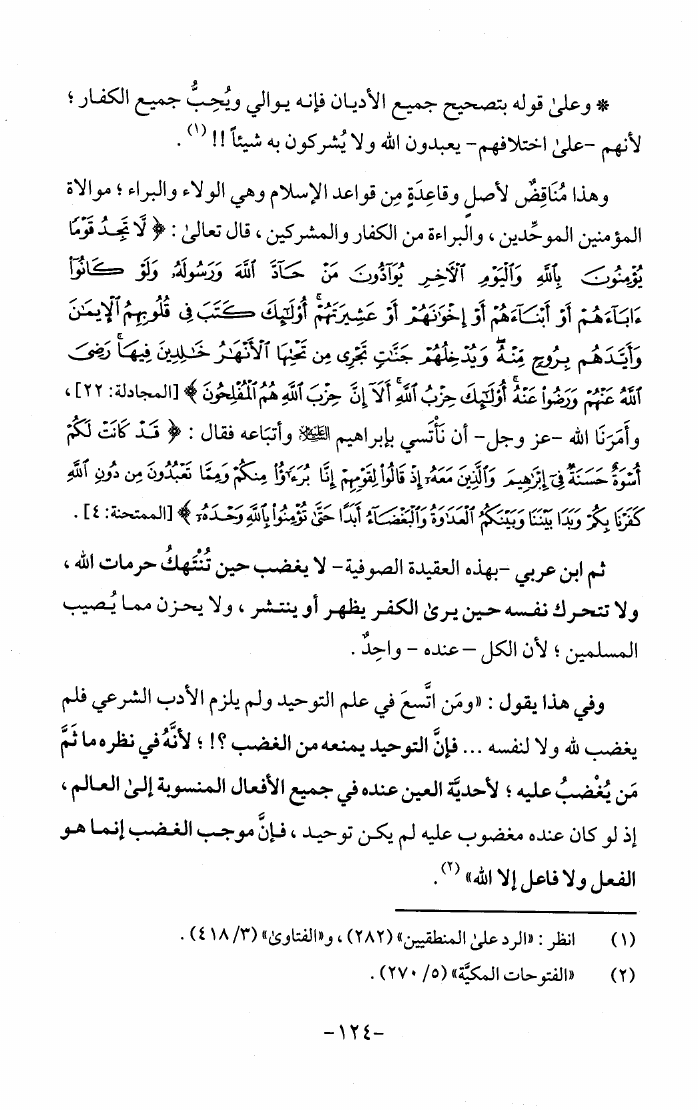 * وعلىٰ قوله بتصحيح جميع الأديان فإنه يوالي ويُحِبُّ جميع الكفار ؛
لأنهم -علىٰ اختلافهم- يعبدون الله ولا يُشركون به شيئاً !! (١) .
وهذا مُنَاقِضٌ لأصلٍ وقاعِدَةٍ مِن قواعد الإسلام وهي الولاء والبراء ؛ موالاة
المؤمنين الموحِّدين ، والبراءة من الكفار والمشركين ، قال تعالىٰ : ﴿ لَّا تَجِدُ قَوْمًا
يُؤْمِنُونَ بِٱللَّهِ وَٱلْيَوْمِ ٱلْأَخِرِ يُوَآدُّونَ مَنْ حَآدَّ ٱللَّهَ وَرَسُولَهُۥ وَلَوْ كَانُوٓا۟
ءَابَآءَهُمْ أَوْ أَبْنَآءَهُمْ أَوْ إِخْوَٰنَهُمْ أَوْ عَشِيرَتَهُمْ ۚ أُو۟لَٰٓئِكَ كَتَبَ فِى قُلُوبِهِمُ ٱلْإِيمَٰنَ
وَأَيَّدَهُم بِرُوحٍ مِّنْهُ ۖ وَيُدْخِلُهُمْ جَنَّٰتٍ تَجْرِى مِن تَحْتِهَا ٱلْأَنْهَٰرُ خَٰلِدِينَ فِيهَا ۚ رَضِىَ
ٱللَّهُ عَنْهُمْ وَرَضُوا۟ عَنْهُ ۚ أُو۟لَٰٓئِكَ حِزْبُ ٱللَّهِ ۚ أَلَآ إِنَّ حِزْبَ ٱللَّهِ هُمُ ٱلْمُفْلِحُونَ ﴾ [المجادلة: ٢٢] ،
وأمَرَنَا الله -عز وجل- أن نَأْتَسي بإبراهيم عليه السلام وأتبَاعه فقال : ﴿ قَدْ كَانَتْ لَكُمْ
أُسْوَةٌ حَسَنَةٌ فِىٓ إِبْرَٰهِيمَ وَٱلَّذِينَ مَعَهُۥٓ إِذْ قَالُوا۟ لِقَوْمِهِمْ إِنَّا بُرَءَٰٓؤُا۟ مِنكُمْ وَمِمَّا تَعْبُدُونَ مِن دُونِ ٱللَّهِ
كَفَرْنَا بِكُمْ وَبَدَا بَيْنَنَا وَبَيْنَكُمُ ٱلْعَدَٰوَةُ وَٱلْبَغْضَآءُ أَبَدًا حَتَّىٰ تُؤْمِنُوا۟ بِٱللَّهِ وَحْدَهُۥٓ ﴾ [الممتحنة: ٤] .
ثم ابن عربي -بهذه العقيدة الصوفية- لا يغضب حين تُنْتَهكُ حرمات الله ،
ولا تتحرك نفسه حين يرىٰ الكفر يظهر أو ينتشر ، ولا يحزن مما يُصيب
المسلمين ؛ لأن الكل - عنده - واحِدٌ .
وفي هذا يقول : «ومَن اتَّسعَ في علم التوحيد ولم يلزم الأدب الشرعي فلم
يغضب لله ولا لنفسه ... فإنَّ التوحيد يمنعه من الغضب ؟! ؛ لأنَّهُ في نظره ما ثَمَّ
مَن يُغْضبُ عليه ؛ لأحديَّة العين عنده في جميع الأفعال المنسوبة إلىٰ العالم ،
إذ لو كان عنده مغضوب عليه لم يكن توحيد ، فإنَّ موجب الغضب إنما هو
الفعل ولا فاعل إلا الله» (٢) .
(١) انظر : «الرد علىٰ المنطقيين» (٢٨٢) ، و«الفتاوىٰ» (٣/ ٤١٨) .
(٢) «الفتوحات المكيَّة» (٥/ ٢٧٠) .
-١٢٤-